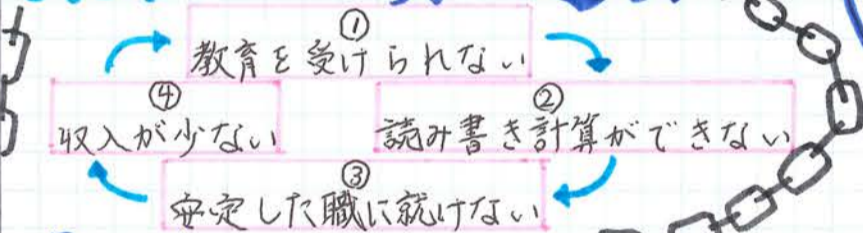 ①
教育を受けられない
②
読み書き計算ができない
③
安定した職に就けない
④
収入が少ない